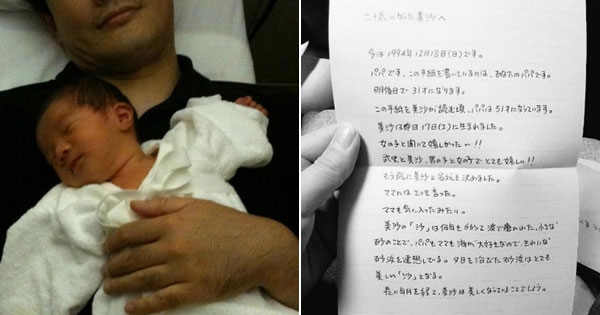 二十歳になった美沙へ
今は1994年12月18日(日)です。
パパです。この手紙を書いているのは、あなたのパパです。
明後日で31才になります。
この手紙を美沙が読む頃、パパは51才になっています。
美沙は昨日17日(土)に生まれました。
女の子と聞いて嬉しかったー!!
武史と美沙、男の子と女の子でとても嬉しい!!
もう既に美沙と名前を決めました。
ママにはもう言った。
ママも気に入ったみたい。
美沙の「沙」は何年もかかって波で磨かれた、小さな
砂のことで、パパもママも海が大好きなので、きれいな
砂浜を連想している。夕日を浴びた砂浜はとても
美しい「沙」となる。
長い年月を経て、美沙は美しくなっていることでしょう。